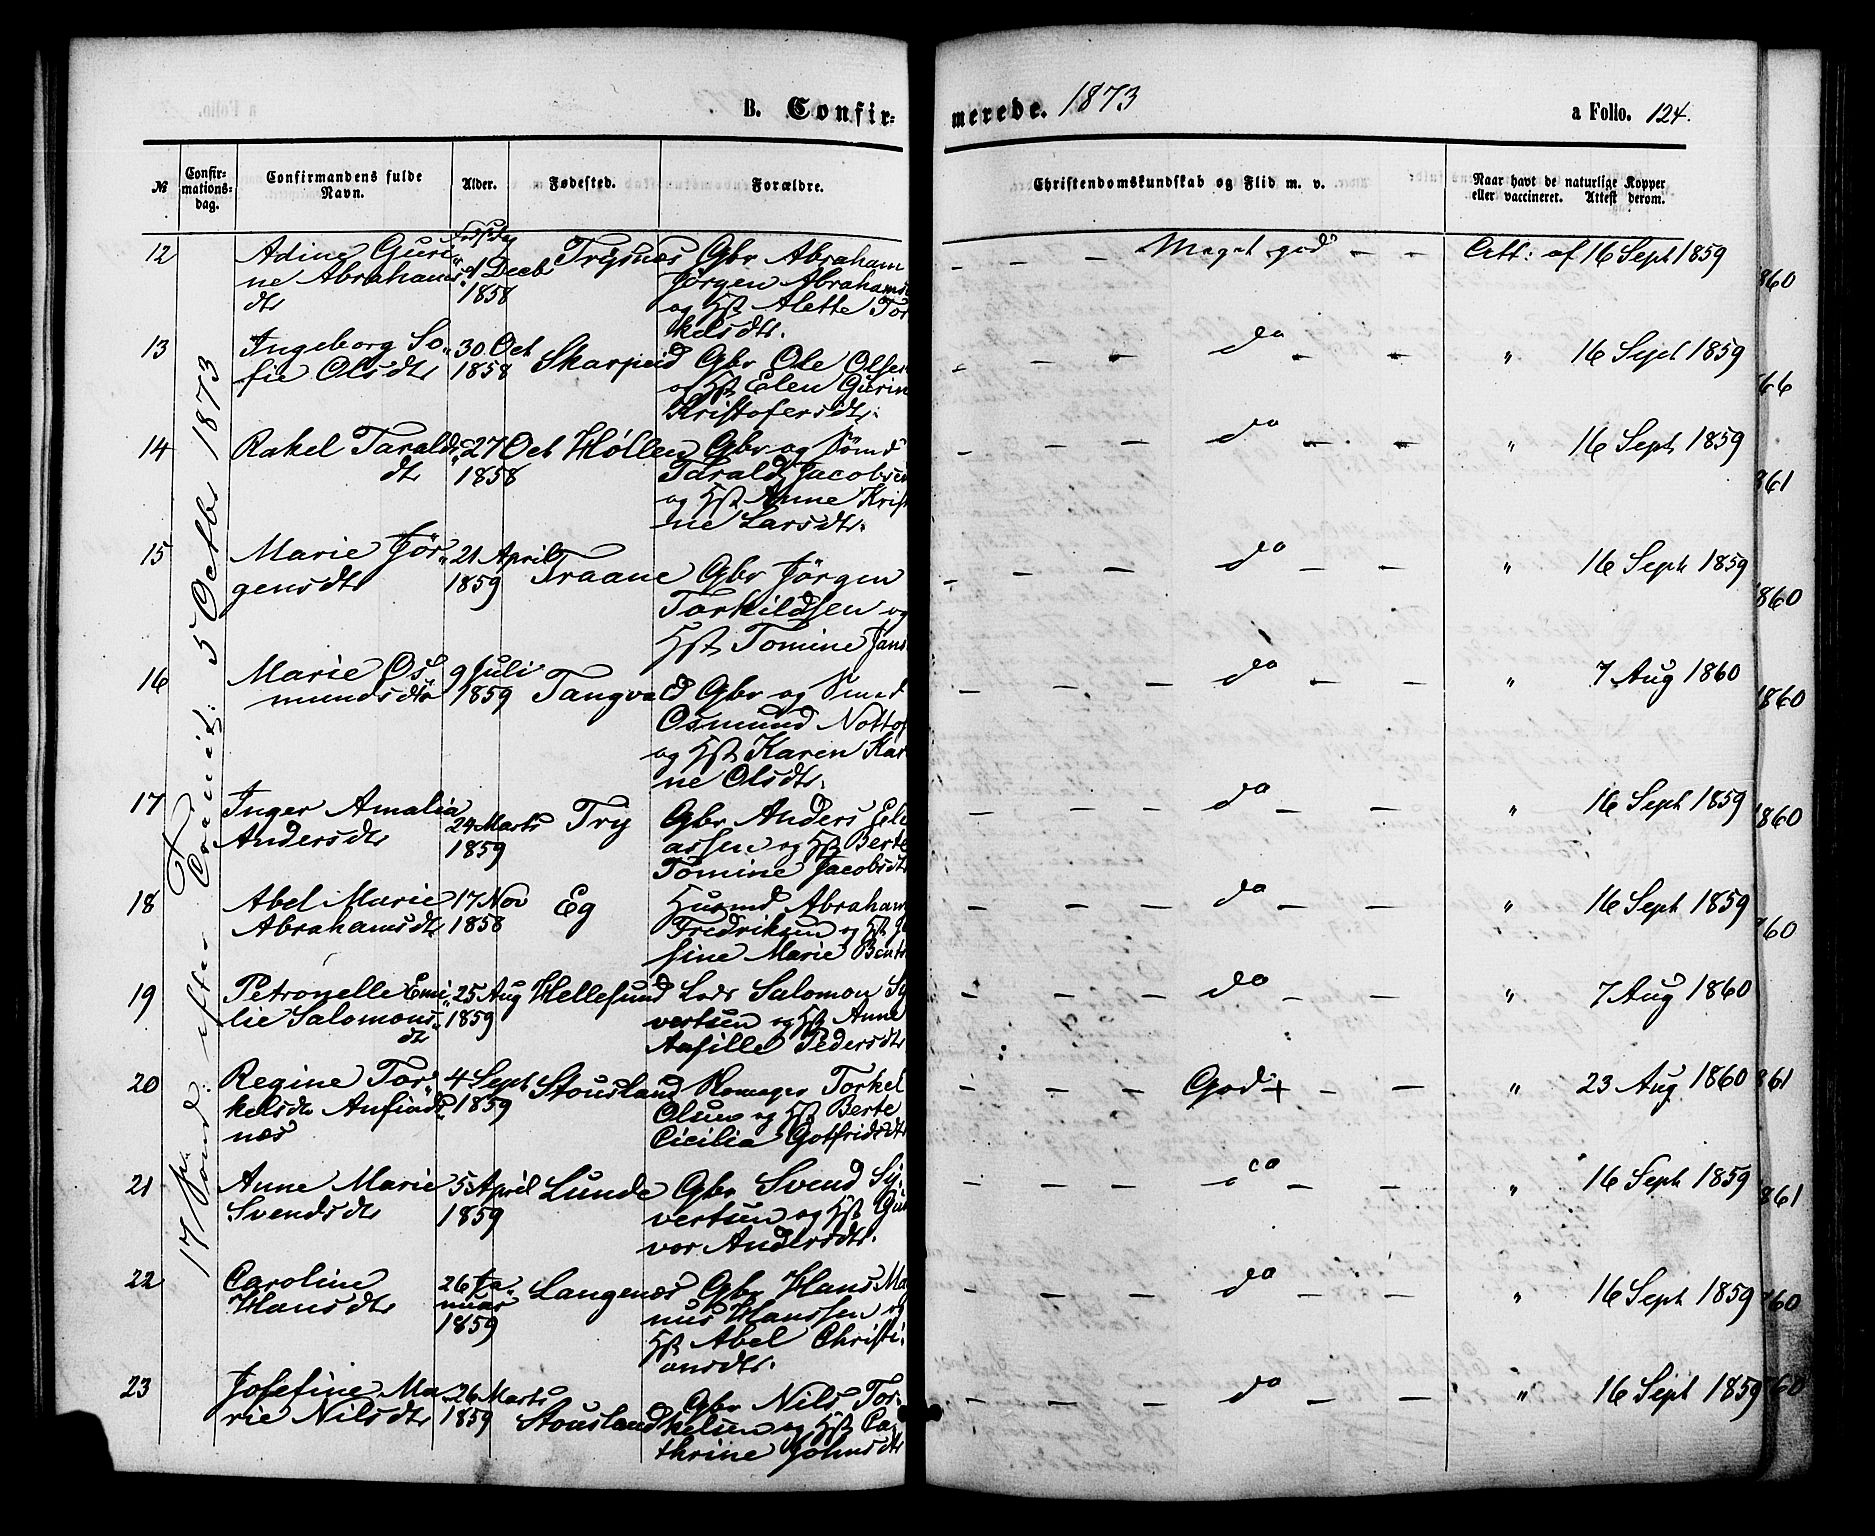 B. Confir-
merede. 1873
a Folio. 124.
№
Confir-
mations-
dag.
Confirmandens fulde
Navn.
Alder.
Fødested.
Forældre.
Christendomskundskab og Flid m. v.
Naar havt de naturlige Kopper
eller vaccineret. Attest derom.
5 Octb 1873
12
Adine Guri
ne Abrahams
dtr
1 Decb
1858
Trysnæs
Gbr Abraham
Jørgen Abrahams
og Hst Alette Tor
kelsdtr.
— — — Meget god — —
Att: af 16 Sept 1859
13
Ingeborg So-
fie Olsdtr
30 Oct
1858
Skarpeid
Gbr Ole Olsen
og Hst Elen Gurin
Kristofersdtr.
do
" 16 Sept 1859
14
Rakel Taralds
dtr
27 Oct
1858
Høllen
Gbr og Sømd
Tarald Jacobsen
og Hst Anne Krist
ne Larsdtr.
do
" 16 Sept 1859
15
Marie Jør-
gensdtr
21 April
1859
Traane
Gbr Jörgen
Torkildsen og
Hst Tomine Jans
do
" 16 Sept 1859
16
Marie Os
mundsdtr
9 Juli
1859
Tangvald
Gbr og
Osmund Nottof
og Hst Karen Kar
ne Olsdtr.
do
" 7 Aug 1860
17
Inger Amalia
Andersdtr
24 Marts
1859
Try
Gbr Anders Eli
assen og Hst Berte
Tomine Jacobsdtr
do
" 16 Sept 1859
18
Abel Marie
Abrahamsdtr
17 Nov
1858
Eg
Husmd Abraham
Fredriksen og Hst
sine Marie Bents
do
" 16 Sept 1859
19
Petronelle Emi-
lie Salomons
dtr
25 Aug
1859
Hellesund
Lods Salomon Sy
vertsen og Hst Anne
Pedersdtr
do
" 7 Aug 1860
20
Regine Tor-
kelsdtr Anfinds
næs
4 Sept
1859
Stousland
Torkel
Olsen og Hst Berte
Cicilia Gotfridsdtr
God +
" 23 Aug 1860
21
Anne Marie
Svendsdtr
5 April
1859
Lunde
Gbr Svend Sy-
vertsen og Hst Gun
vor Andersdtr.
do
" 16 Sept 1859
22
Caroline
Hansdtr
26 Ja-
nuar
1859
Langenæs
Gbr Hans Mag
nus Hanssen og
Hst Abel Christi-
ansdtr.
do
" 16 Sept 1859
23
Josefine Ma
rie Nilsdtr
26 Marts
1859
Stousland
Gbr Nils Tor-
kelsen og Hst Ca-
thrine Johnsdtr
do
" 16 Sept 1859
860
66
861
860
1860
1860
60
861
861
60
60